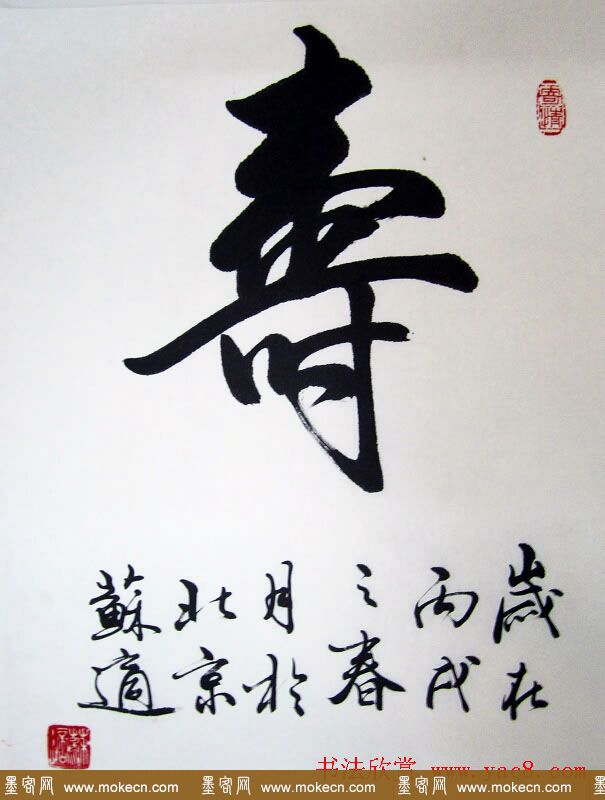 壽
歲在
丙戌
之春
月於
北京
蘇適
书法欣赏 www.yac8.com
墨客网 www.mokecn.com 墨客网 www.mokecn.com 墨客网 www.mokecn.com